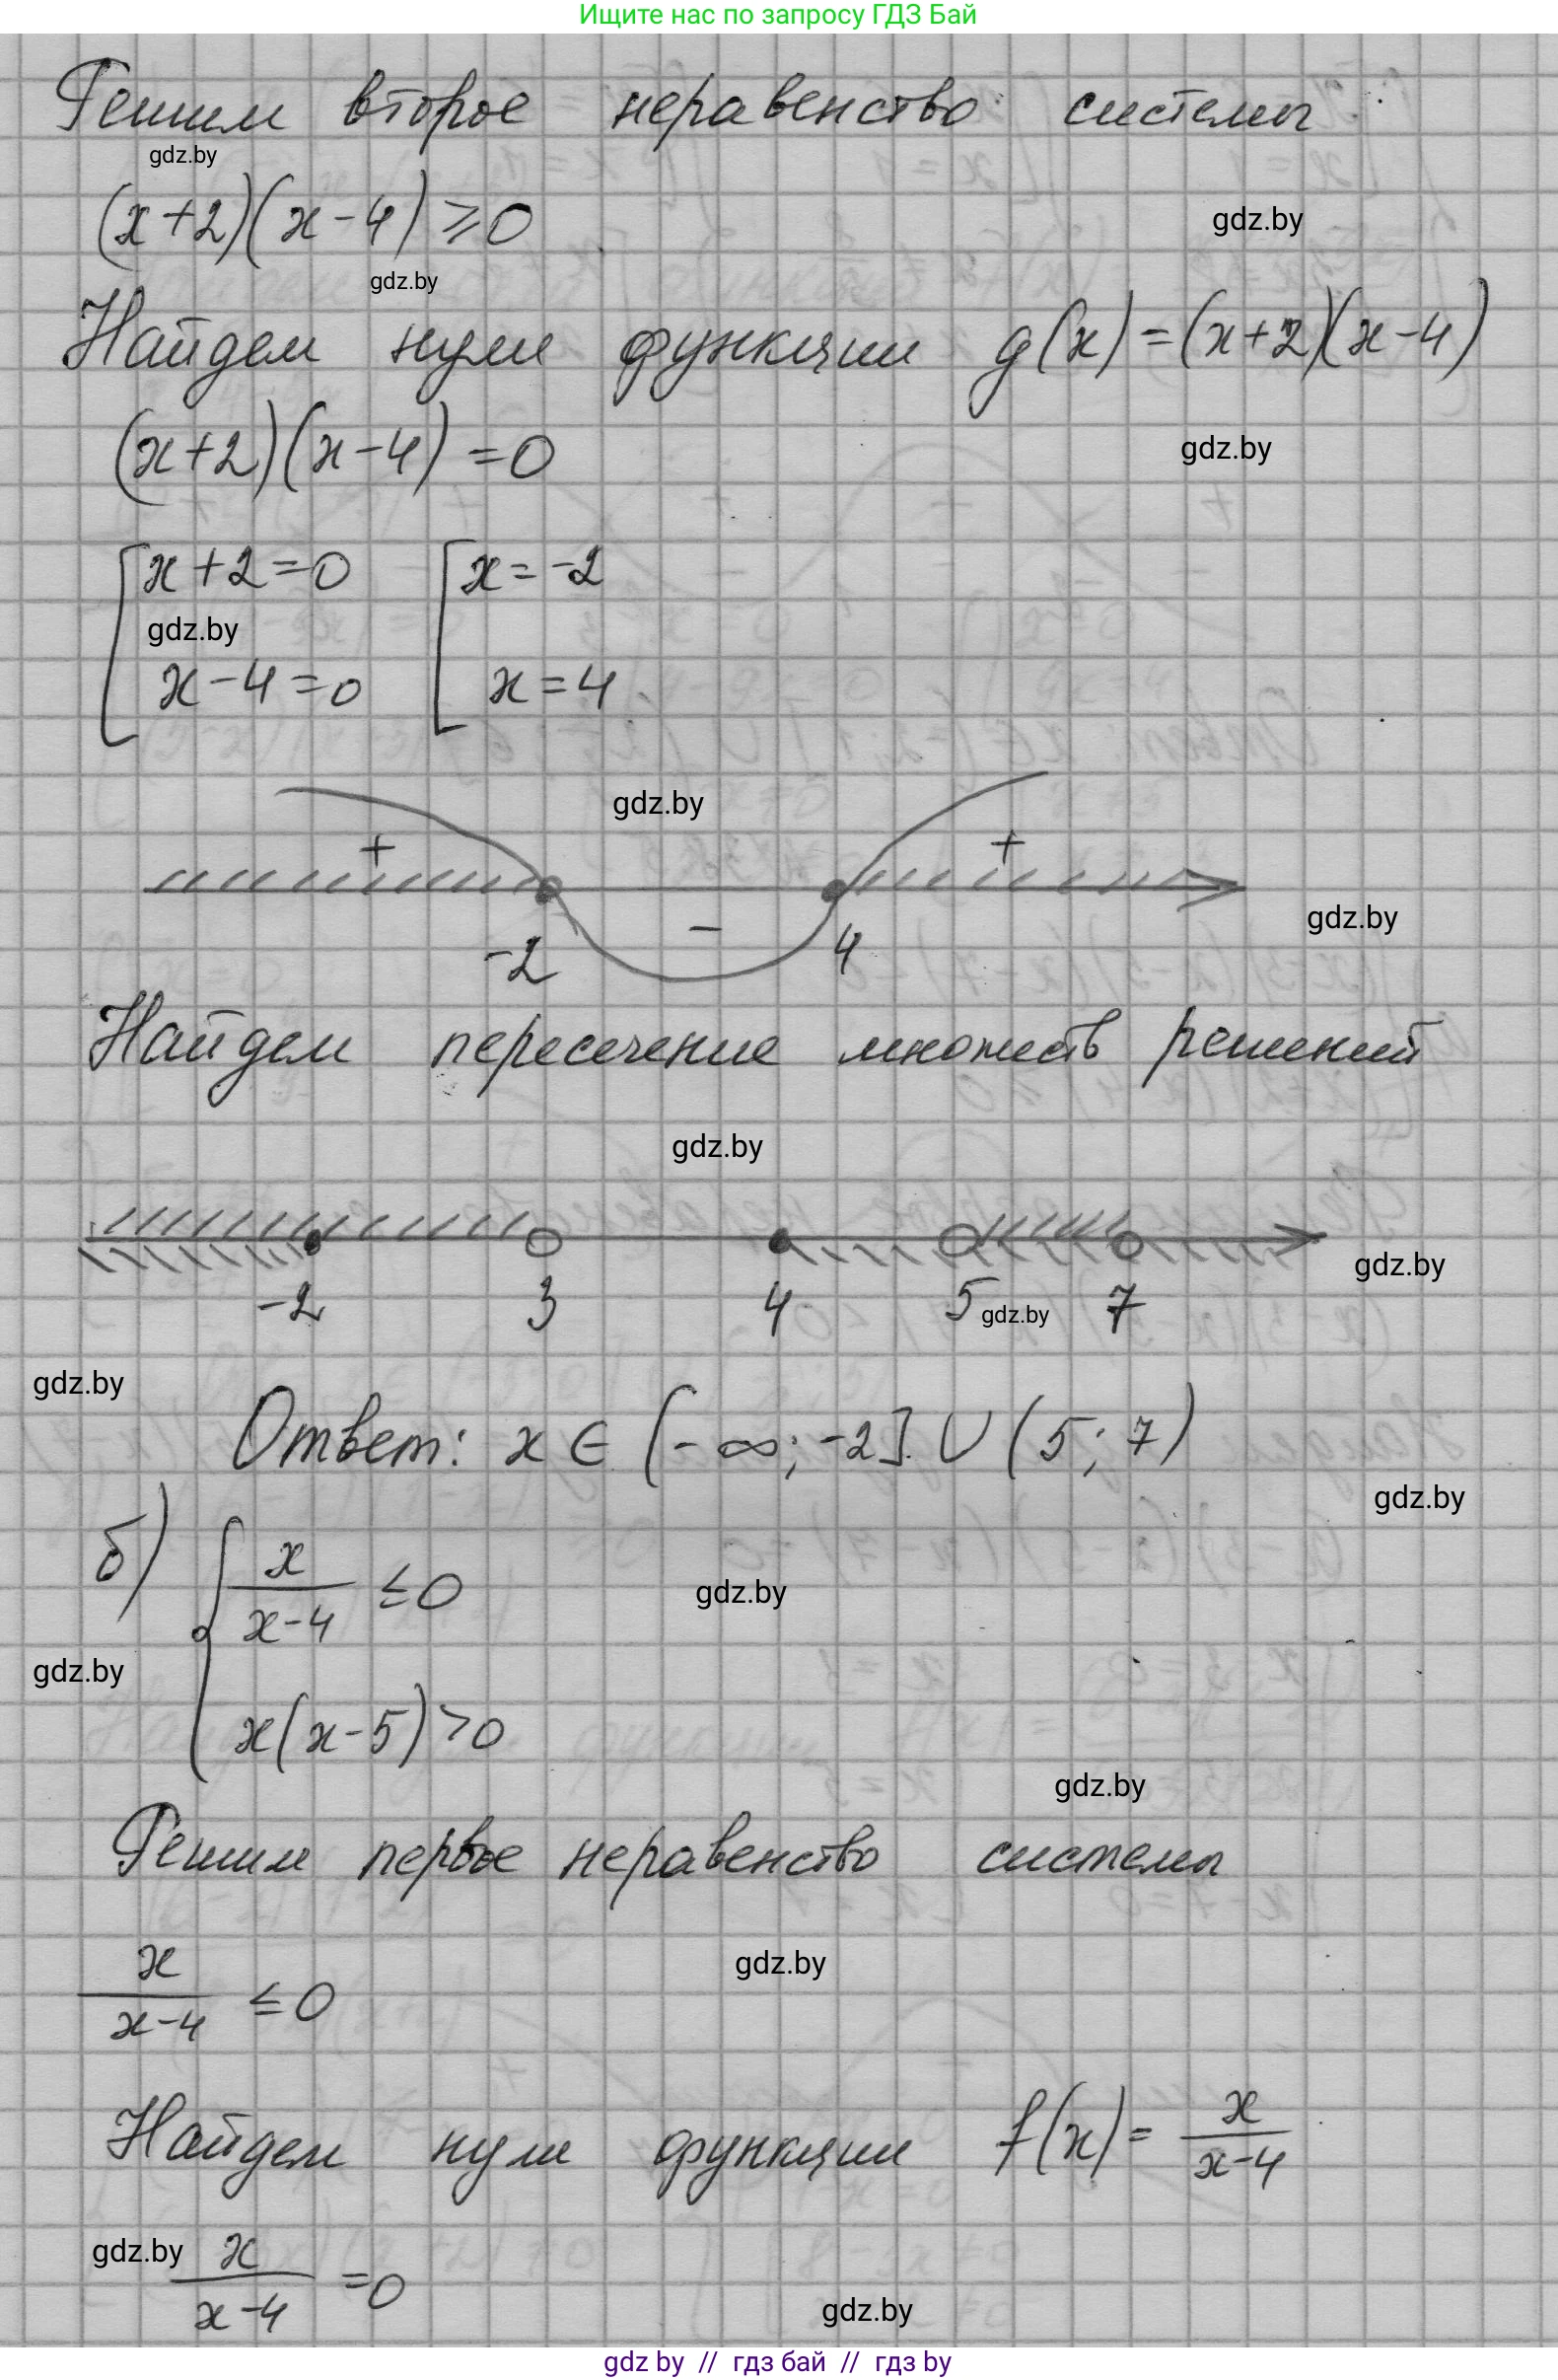 Ищите нас по запросу ГДЗ Бай
Решим второе неравенство системы:
gdz.by
(x+2)(x-4) ⩾ 0
gdz.by
gdz.by
Найдем нули функции g(x)=(x+2)(x-4)
(x+2)(x-4)=0
gdz.by
[x+2=0 [x=-2
gdz.by
x-4=0 x=4
gdz.by
+ +
-
-2 4
gdz.by
Найдем пересечение множеств решений
gdz.by
gdz.by
-2 3 4 5 7
gdz.by
gdz.by
Ответ: x ∈ (-∞; -2] ∪ (5; 7)
gdz.by
б) { x/(x-4) ≤ 0
gdz.by
gdz.by
x(x-5)>0
gdz.by
Решим первое неравенство системы
x/(x-4) ≤ 0
gdz.by
Найдем нули функции f(x)= x/(x-4)
gdz.by
x/(x-4) =0
gdz.by
gdz by // гдз бай // гдз by